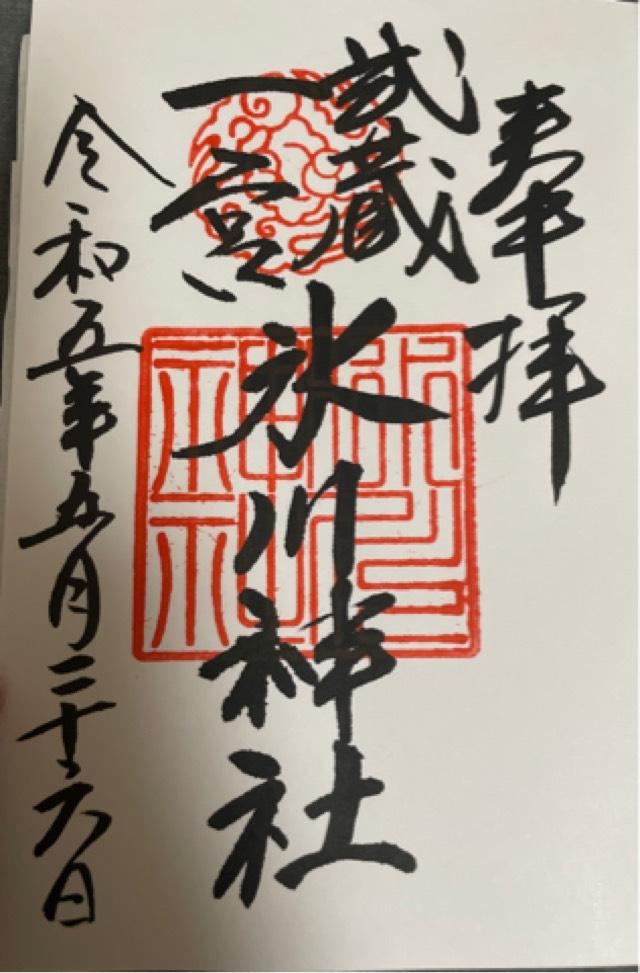 奉拝
武蔵
一宮
氷川神社
令和五年五月二十六日
氷川
神社